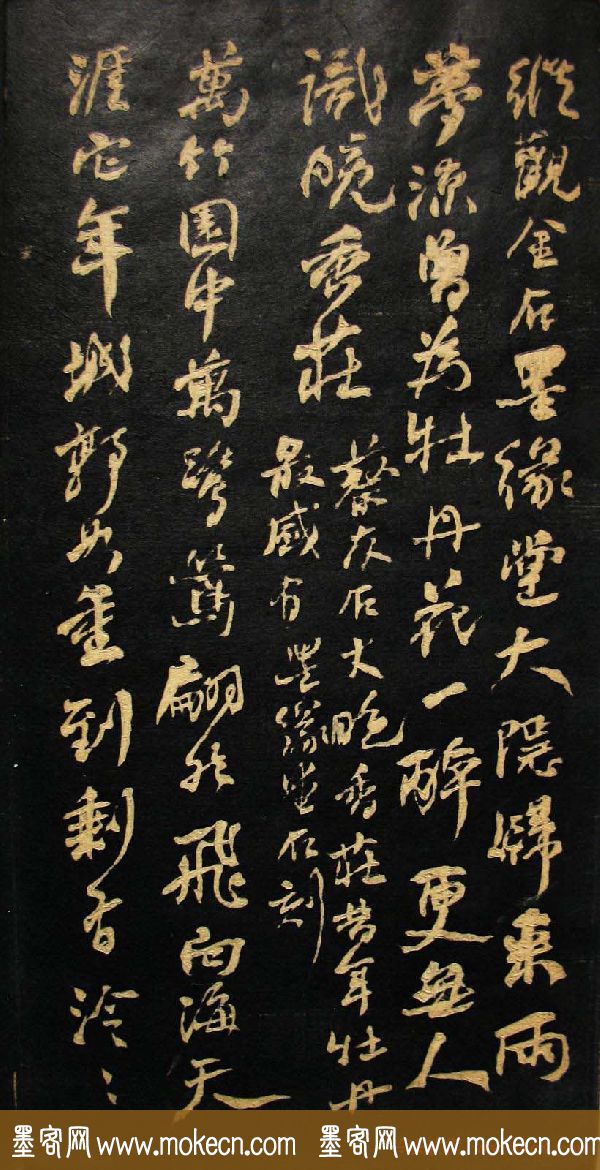 縱觀金石墨緣堂大隱歸來兩
鬢涼曾為牡丹花一醉更無人
識晚香莊
蔡友石大晚香莊昔年牡丹
最盛有墨緣堂石刻
萬竹園中萬鷺翩然飛向海天
涯它年城郭如重到剩有泠〻
墨客网 www.mokecn.com 墨客网 www.mokecn.com